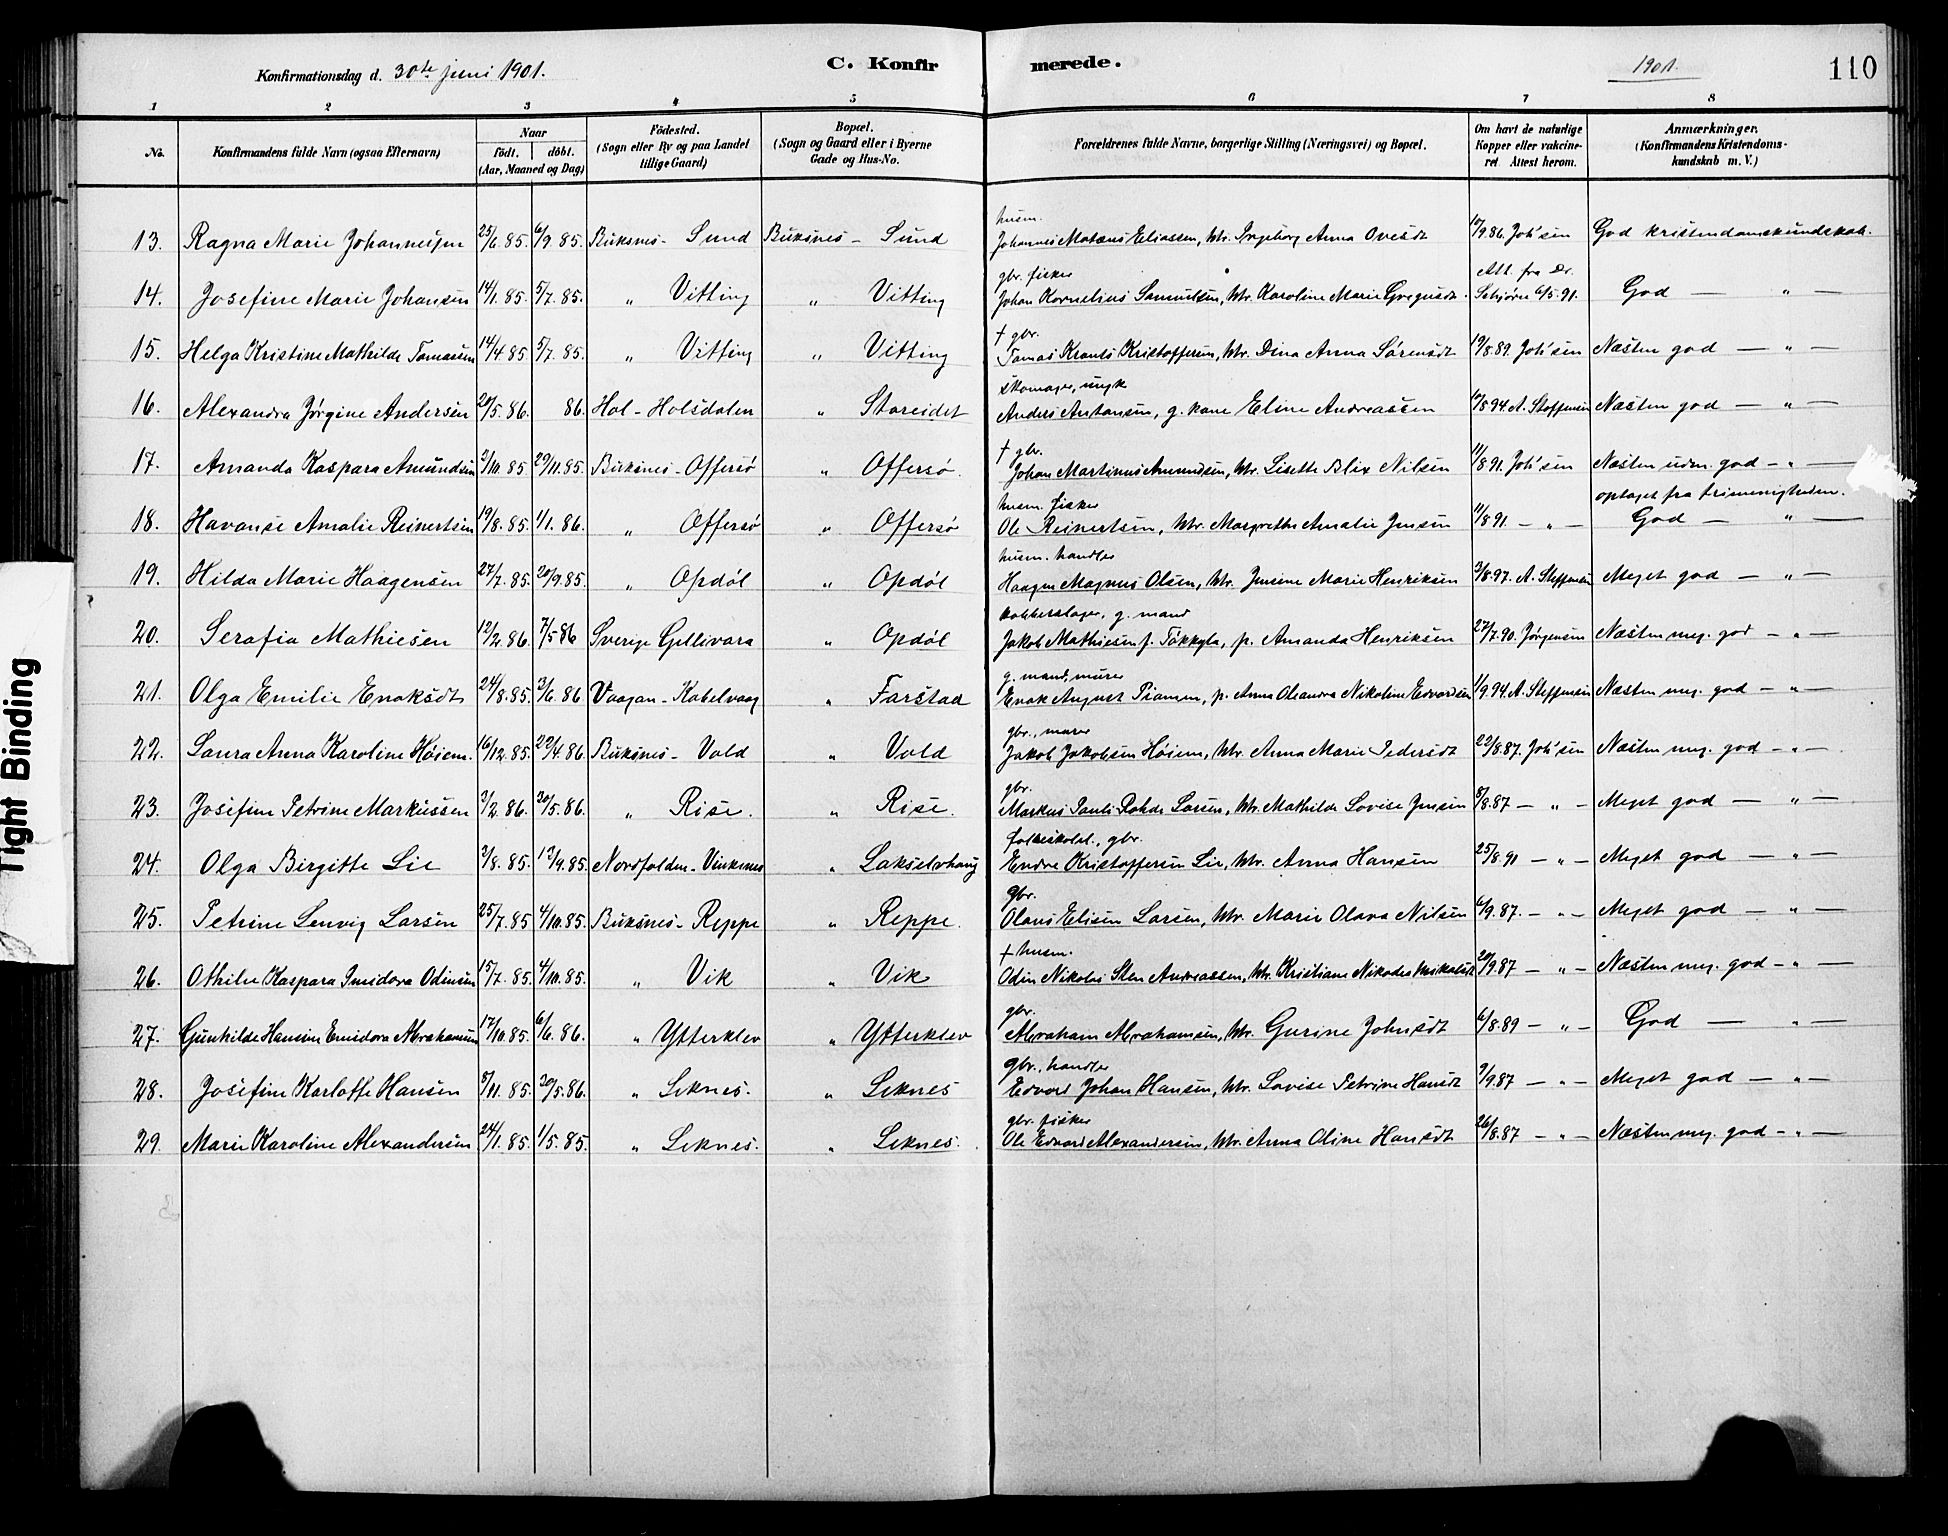 Konfirmationsdag d. 30te juni 1901.
C. Konfirmerede.
1901.
110
1 2 3 4 5 6 7 8
No.
Konfirmandens fulde Navn (ogsaa Efternavn)
Naar
født. døbt.
(Aar, Maaned og Dag)
Fødested.
(Sogn eller By og paa Landet
tillige Gaard)
Bopæl.
(Sogn og Gaard eller i Byerne
Gade og Hus-No.
Forældrenes fulde Navne, borgerlige Stilling (Næringsvei) og Bopæl.
Om havt de naturlige
Kopper eller vakcine-
ret. Attest herom.
Anmærkninger.
(Konfirmandens Kristendoms-
kundskab m. V.)
husm.
13. Ragna Marie Johannesen 25/6.85. 6/9.85. Buksnes - Sund Buksnes - Sund Johannes Matæus Eliassen, htr. Ingeborg Anna Ovesdt 17/9.86. Joh'sen God kristendomskundskab.
gbr. fisker Att. fra Dr.
14. Josefine Marie Johansen 14/1.85. 5/7.85. „ Vitting „ Vitting Johan Kornelius Samuelsen, htr. Karoline Marie Gregusdt. 6/5.91. God — „ —
† gbr.
15. Helga Kristine Mathilde Tomassen 14/4.85 5/7.85. „ Vitting „ Vitting Tomas Krants Kristoffersen, htr. Dina Anna Sørensdt 19/8.89. Joh'sen Næsten god — „ —
skomager, ungk
16. Alexandra Jørgine Andersen 20/5.86. 86. Hol - Holsdalen „ Storeidet Anders Antonsen, g. kone Eline Andreassen 17/8 94. A. Steffensen Næsten god — „ —
† gbr.
17. Amanda Kaspara Amundsen 2/10.85 29/11.85. Buksnes - Offersø „ Offersø. Johan Martinus Amundsen, htr. Lisette Blix Nilsen 11/8.91. Joh'sen Næsten udm. god - „ —
husm. fisker optaget fra frimenigheden.
18. Havanse Amalie Reinertsen 19/8.85. 1/1.86. „ Offersø „ Offersø Ole Reinertsen, htr. Margrethe Amalie Jensen 11/8 91. — „ — God — „ —
husm. handler
19. Hilda Marie Haagensen 27/7.85. 20/9.85. „ Opdøl „ Opdøl Haagen Magnus Olsen, htr. Jensine Marie Henriksen 3/8.97. A. Steffensen Meget god — „ —
kobberslager, g. mand
20. Serafia Mathiesen 12/2.86. 7/5 86 Sverige Gellivara „ Opdøl Jakob Mathiesen f. p. Amanda Henriksen 27/7.90. Jørgensen Næsten meg. god - „ —
g. mand, murer
21. Olga Emilie Enoksdt 24/8.85. 3/6.86 Vaagan - Kabelvaag „ Farstad Enok August p. Anna Oleandra Nikoline Edvardsen 1/9.94. A. Steffensen Næsten meg. god - „ —
gbr., murer
22. Laura Anna Karoline Høiem. 16/12.85. 22/4.86. Buksnes - Vold „ Vold Jakob Jakobsen Høiem, htr. Anna Marie Pedersdt 22/8.87. Joh'sen Næsten meg. god - „ —
gbr.
23. Josefine Petrine Markussen 3/2.86. 30/5.86. „ Rise. „ Rise. Markus Pauli Rohde Larsen, htr. Mathilde Lovise Jensen 8/8.87 — „ — Meget god — „ —
folkeskolel., gbr.
24. Olga Birgitte Lie 3/8.85. 13/9.85. Nordfolden - Vinkenes „ Lakselvhaug Endre Kristoffersen Lie, htr. Anna Hansen 25/8.91 — „ — Meget god — „ —
gbr.
25. Petrine Lenvig Larsen 25/7.85 4/10.85. Buksnes - Reppe „ Reppe. Olaus Elisen Larsen, htr. Marie Olava Nilsen 6/9.87. — „ — Meget god — „ —
† husm.
26. Othilie Kaspara Odinsen 15/7.85. 4/10.85. „ Vik „ Vik Odin Nikolai Sten Andreassen, htr. Kristiane 20/9.87 — „ — Næsten meg. god - „ —
gbr.
27. Gunhilde Hansine Emidora Abrahamsen 17/10.85. 6/6.86. „ Ytterklev „ Ytterklev Abraham Abrahamsen, htr. Gurine Johnsdt 6/8.89 — „ — God — „ —
gbr., handler
28. Josefine Karlotte Hansen 8/11.85. 30/5.86. „ Leknes. „ Leknes Edvard Johan Hansen, htr. Lovise Petrine Hansdt 9/9.87 — „ — Meget god — „ —
gbr. fisker
29. Marie Karoline Alexandersen 24/1.85. 1/5.85. „ Leknes. „ Leknes. Ole Edvard Alexandersen, htr. Anna Oline Hansdt 26/8.87 — „ — Næsten meg. god - „ —
Tight Binding